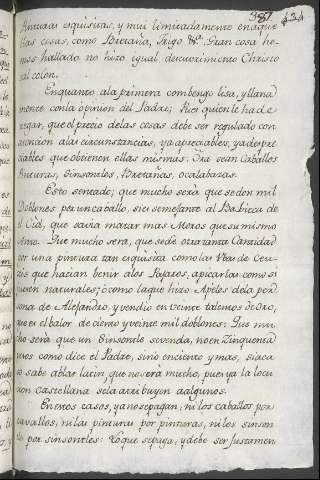 387 434
Pinturas esquisitas, y mui limitadamente en aque
llas cosas, como Bretaña, Trigo &a. Gran cosa he
mos hallado no hizo igual descuvrimiento Christo
val colon.
En quanto ala primera combengo lisa, y llana
mente con la opinion del Padre; Pues quien le ha de
negar, que el precio de las cosas debe ser regulado con
atencion alas circunstancias, ya apreciables, ya despre
ciables que obtienen ellas mismas. Ora sean Caballos
Pinturas, Sinsontes, Bretañas, o calabazas.
Esto sentado; que mucho sera que se den mil
Doblones por un caballo, si es semejante al Babieca de
el Cid, que savia matar mas Moros que su mismo
Amo. Que mucho será, que se dé otra tanta Cantidad
por una pintura tan esquisita como las Vbas de Ceu
zis que hacian benir alos Pajaros, apicarlas como si
fuesen naturales; ó como la que hizo Apeles dela per
sona de Alejandro, y vendio en veinte talentos de Oro,
que es el balor de ciento y veinte mil doblones: Que mu
cho será que un Sinsonte se venda, no en Zinquenta
pesos como dice el Padre, sino en ciento y mas, si aca
so sabe ablar latin, que no será mucho, pues ya la locu
cion castellana sela atribuyen aalgunos.
En estos casos, ya no se pagan, ni los caballos por
cavallos, ni las pinturas por pinturas, ni los sinson
tes por sinsontes: Lo que se paga, y debe ser justamen